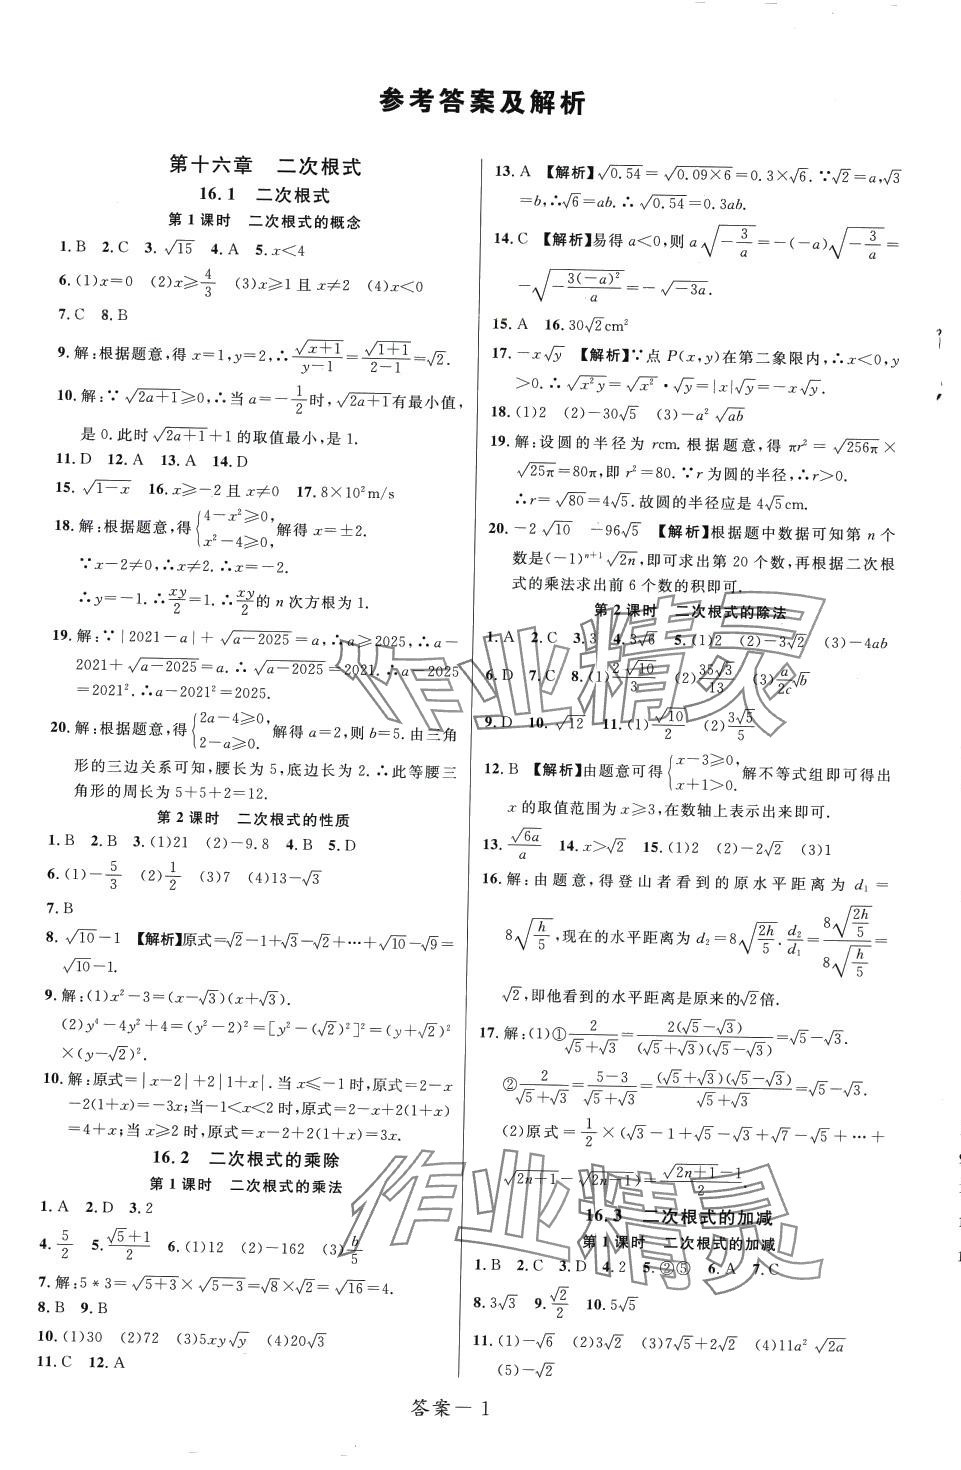 参考答案及解析
第十六章 二次根式
16.1 二次根式
第1课时 二次根式的概念
1.B 2.C 3.√15 4.A 5.x<4
6.(1)x=0 (2)x≥4/3 (3)x≥1且x≠2 (4)x<0
7.C 8.B
9.解:根据题意,得x=1,y=2,∴√(x+1)/(y−1)=√(1+1)/(2−1)=√2.
10.解:∵√(2a+1)≥0,∴当a=−1/2时,√(2a+1)有最小值,
是0.此时√(2a+1)+1的取值最小,是1.
11.D 12.A 13.A 14.D
15.√(1−x) 16.x≥−2且x≠0 17.8×10²m/s
18.解:根据题意,得{4−x²≥0, x²−4≥0,解得x=±2.
∵x−2≠0,∴x≠2.∴x=−2.
∴y=−1.∴xy/2=1.∴xy/2的n次方根为1.
19.解:∵|2021−a|+√(a−2025)=a,∴a≥2025,∴a−
2021+√(a−2025)=a.∴√(a−2025)=2021.∴a−2025
=2021².∴a−2021²=2025.
20.解:根据题意,得{2a−4≥0, 2−a≥0.解得a=2,则b=5.由三角
形的三边关系可知,腰长为5,底边长为2.∴此等腰三
角形的周长为5+5+2=12.
第2课时 二次根式的性质
1.B 2.B 3.(1)21 (2)−9.8 4.B 5.D
6.(1)−5/3 (2)1/2 (3)7 (4)13−√3
7.B
8.√10−1 【解析】原式=√2−1+√3−√2+…+√10−√9=
√10−1.
9.解:(1)x²−3=(x−√3)(x+√3).
(2)y⁴−4y²+4=(y²−2)²=[y²−(√2)²]²=(y+√2)²
×(y−√2)².
10.解:原式=|x−2|+2|1+x|.当x≤−1时,原式=2−x
−2(1+x)=−3x;当−1<x<2时,原式=2−x+2(1+x)
=4+x;当x≥2时,原式=x−2+2(1+x)=3x.
16.2 二次根式的乘除
第1课时 二次根式的乘法
1.A 2.D 3.2
4.5/2 5.(√5+1)/2 6.(1)12 (2)−162 (3)b/5
7.解:5*3=√(5+3)×√(5−3)=√8×√2=√16=4.
8.B 9.B
10.(1)30 (2)72 (3)5xy√y (4)20√3
11.C 12.A
13.A 【解析】√0.54=√(0.09×6)=0.3×√6.∵√2=a,√3
=b,∴√6=ab.∴√0.54=0.3ab.
14.C 【解析】易得a<0,则a√(−3/a)=−(−a)√(−3/a)=
−√(−3(−a)²/a)=−√(−3a).
15.A 16.30√2cm²
17.−x√y 【解析】∵点P(x,y)在第二象限内,∴x<0,y
>0.∴√(x²y)=√(x²)·√y=|x|√y=−x√y.
18.(1)2 (2)−30√5 (3)−a²√(ab)
19.解:设圆的半径为rcm.根据题意,得πr²=√(256π)×
√(25π)=80π,即r²=80.∵r为圆的半径,∴r>0.
∴r=√80=4√5.故圆的半径应是4√5cm.
20.−2√10 −96√5 【解析】根据题中数据可知第n个
数是(−1)ⁿ⁺¹√(2n),即可求出第20个数,再根据二次根
式的乘法求出前6个数的积即可.
第2课时 二次根式的除法
1.A 2.C 3.3 4.3√6 5.(1)2 (2)−3√2 (3)−4ab
6.D 7.C 8.(1)2√10/3 (2)35√3/13 (3)a/2c√b
9.D 10.√12 11.(1)√10/2 (2)3√5/5
12.B 【解析】由题意可得{x−3≥0, x+1>0.解不等式组即可得出
x的取值范围为x≥3,在数轴上表示出来即可.
13.√(6a)/a 14.x>√2 15.(1)2 (2)−2√2 (3)1
16.解:由题意,得登山者看到的原水平距离为d₁=
8√(h/5),现在的水平距离为d₂=8√(2h/5).d₂/d₁=8√(2h/5)/8√(h/5)=
√2,即他看到的水平距离是原来的√2倍.
17.解:(1)①2/(√5+√3)=2(√5−√3)/(√5+√3)(√5−√3)=√5−√3.
②2/(√5+√3)=(5−3)/(√5+√3)=(√5+√3)(√5−√3)/(√5+√3)=√5−√3.
(2)原式=1/2×(√3−1+√5−√3+√7−√5+…+
√(2n+1)−√(2n−1))=(√(2n+1)−1)/2.
16.3 二次根式的加减
第1课时 二次根式的加减
1.B 2.C 3.D 4.2 5.②⑤ 6.A 7.C
8.3√3 9.√2/2 10.5√5
11.(1)−√6 (2)3√2 (3)7√5+2√2 (4)11a²√(2a)
(5)−√2
答案−1
作业精灵
作业精灵